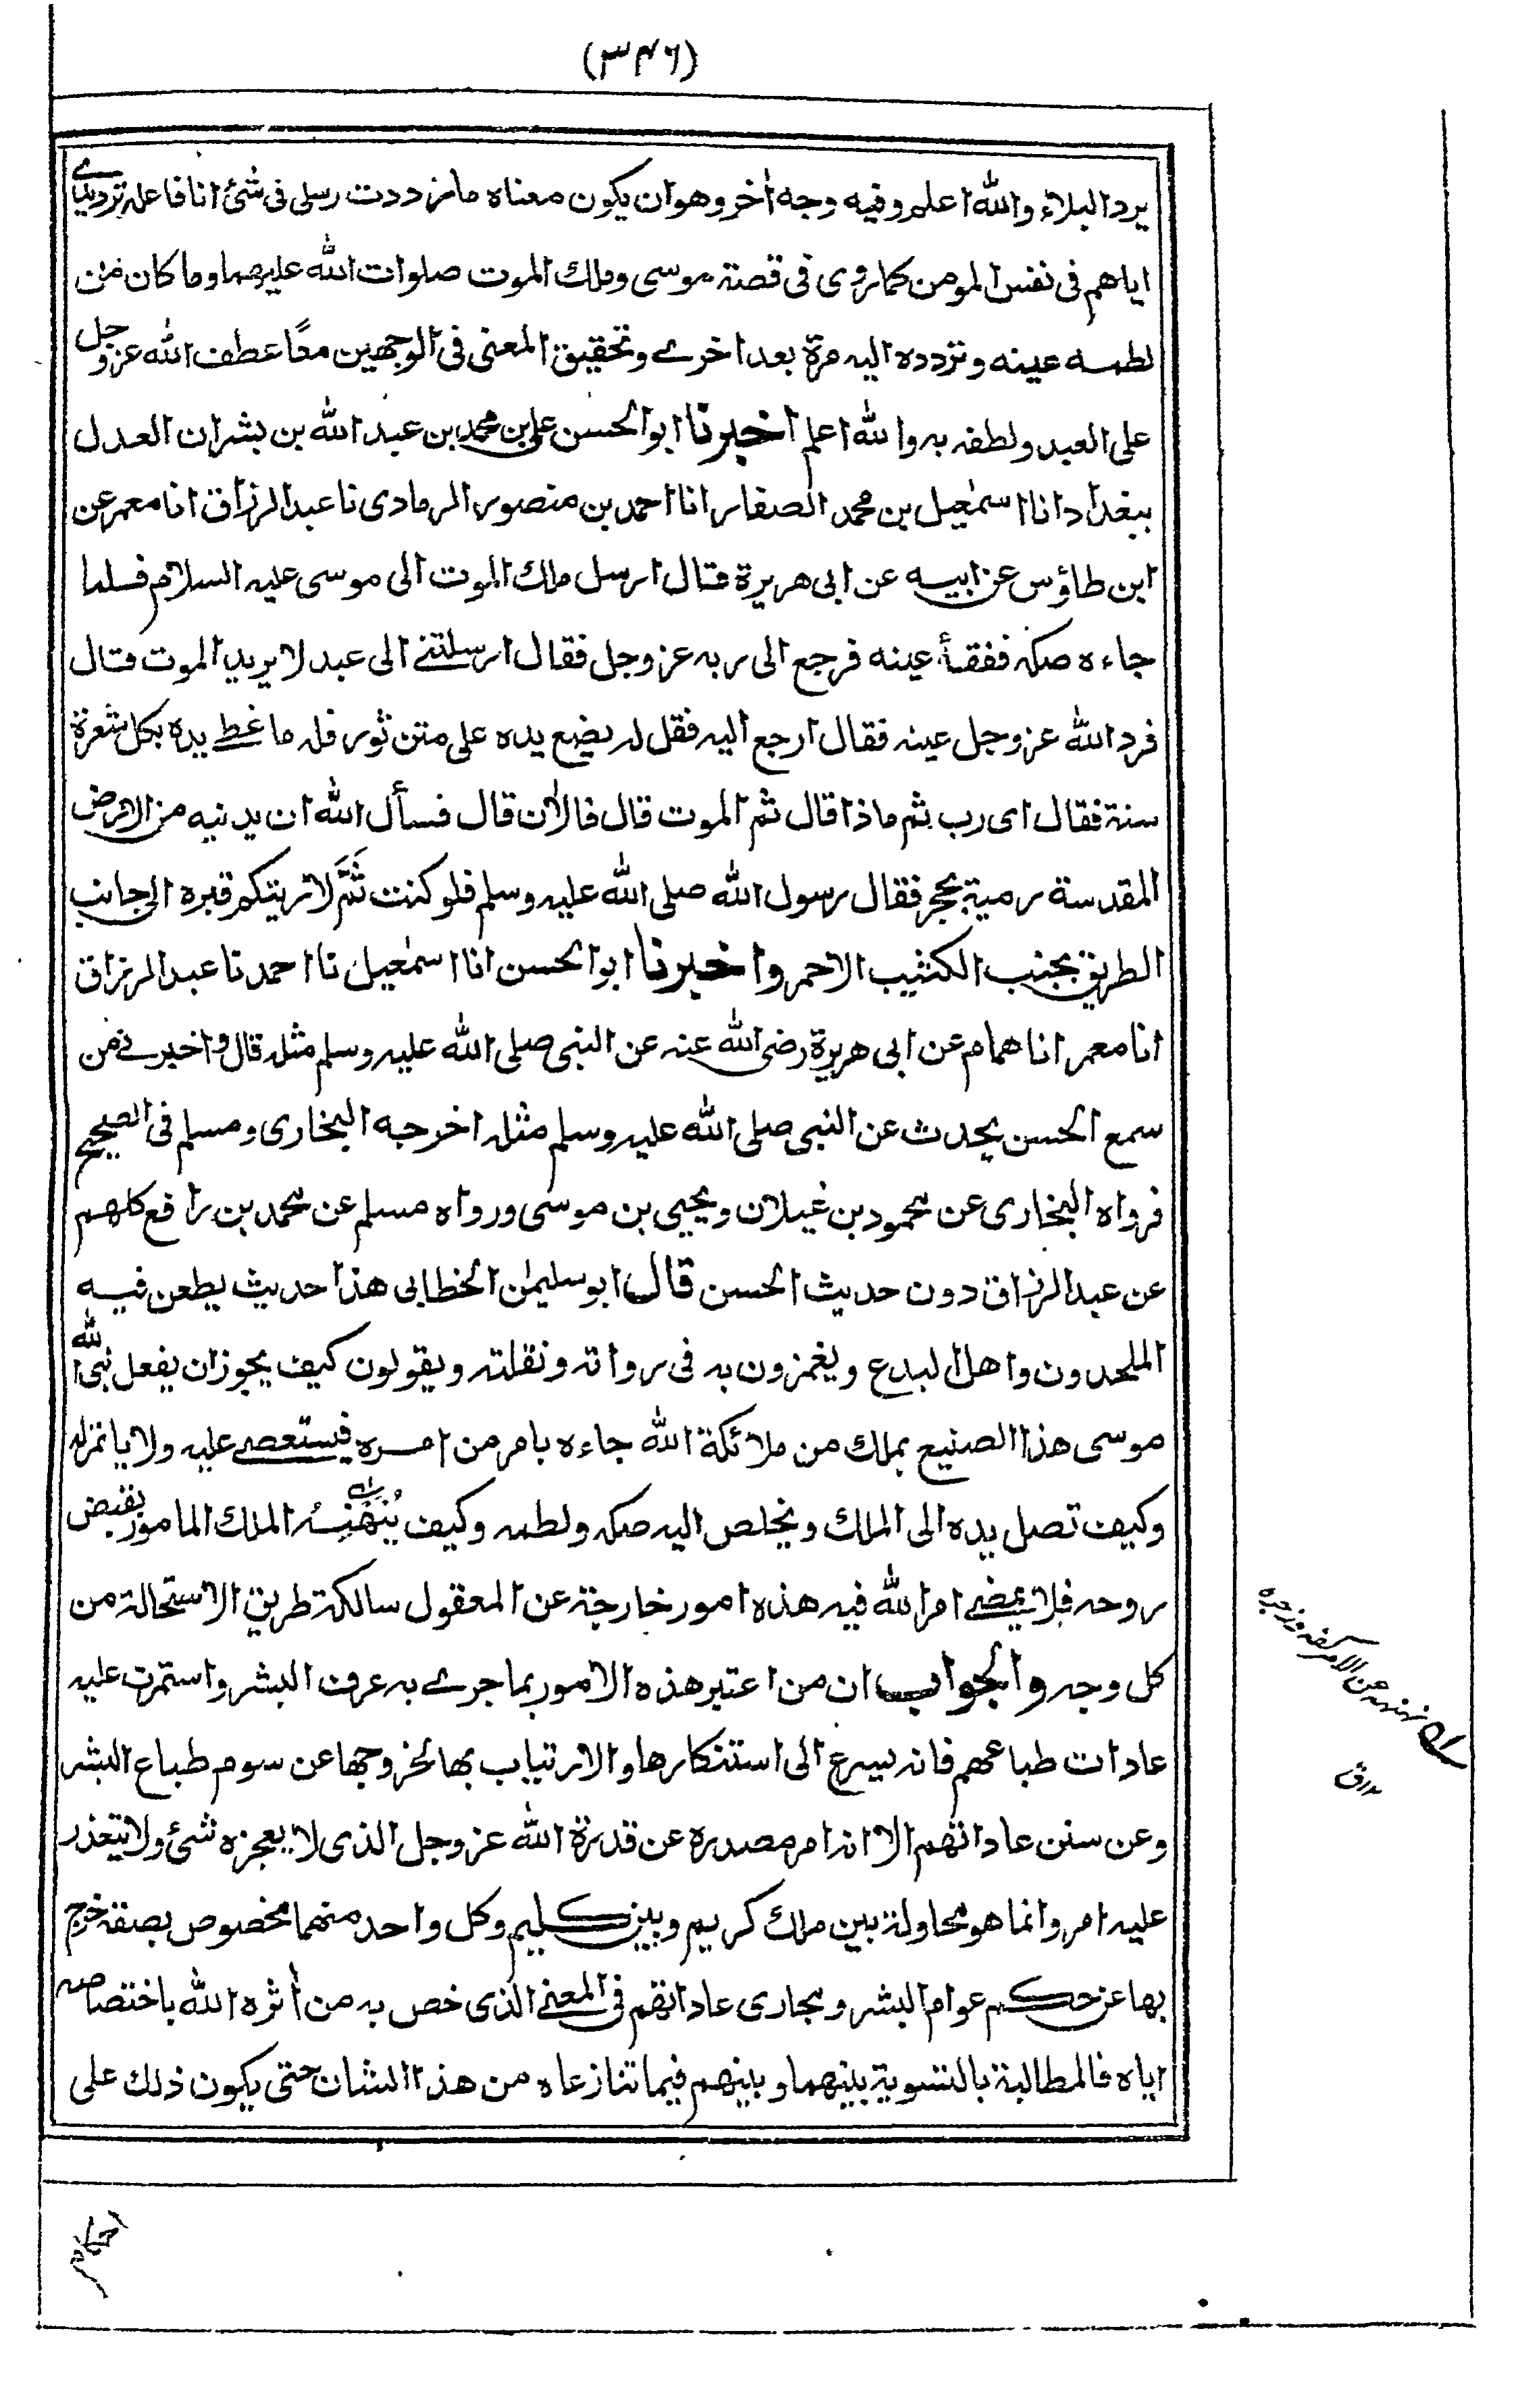 (۳۴۶)
يرد البلاء والله اعلم وفيه وجه أخر وهو ان يكون معناه ما رددت رسلى فى شئ انا فاعله ترديدى
اياهم فى نفس المومن كما روى فى قصة موسى وملك الموت صلوات الله عليهما وما كان من
لطمه عينه وتردده اليه مرة بعد اخرى وتحقيق المعنى فى الوجهين معًا عطف الله عز وجل
على العبد ولطفه به والله اعلم اخبرنا ابو الحسن على بن محمد بن عبد الله بن بشران العدل
ببغداد انا اسمٰعيل بن محمد الصفار انا احمد بن منصور الرمادى نا عبد الرزاق انا معمر عن
ابن طاؤس عن ابيه عن ابى هريرة قال ارسل ملك الموت الى موسى عليه السلام فلما
جاءه صكه ففقأ عينه فرجع الى ربه عز وجل فقال ارسلتنى الى عبد لا يريد الموت قال
فرد الله عز وجل عينه فقال ارجع اليه فقل له يضع يده على متن ثور فله ما غطى يده بكل شعرة
سنة فقال اى رب ثم ماذا قال ثم الموت قال فالاٰن قال فسأل الله ان يدنيه من الارض
المقدسة رمية بحجر فقال رسول الله صلى الله عليه وسلم فلو كنت ثَمَّ لاريتكم قبره الى جانب
الطريق بجنب الكثيب الاحمر واخبرنا ابو الحسن انا اسمٰعيل نا احمد نا عبد الرزاق
انا معمر انا همام عن ابى هريرة رضى الله عنه عن النبى صلى الله عليه وسلم مثله قال واخبرنى من
سمع الحسن يحدث عن النبى صلى الله عليه وسلم مثله اخرجه البخارى ومسلم فى الصحيح
فرواه البخارى عن محمود بن غيلان ويحيى بن موسى ورواه مسلم عن محمد بن رافع كلهم
عن عبد الرزاق دون حديث الحسن قال ابو سليمٰن الخطابى هذا حديث يطعن فيه
الملحدون واهل البدع ويغمزون به فى رواته ونقلته ويقولون كيف يجوز ان يفعل نبى الله
موسى هذا الصنيع بملك من ملائكة الله جاءه بامر من امره فيستعصى عليه ولا ياتمر له
وكيف تصل يده الى الملك ويخلص اليه صكه ولطمه وكيف يُنَهْنِهُه الملك المامور بقبض
روحه فلا يمضى امر الله فيه هذه امور خارجة عن المعقول سالكة طريق الاستحالة من
كل وجه والجواب ان من اعتبر هذه الامور بما جرى به عرف البشر واستمرت عليه
عادات طباعهم فانه يسرع الى استنكارها والارتياب بها لخروجها عن سوم طباع البشر
وعن سنن عاداتهم الا انه امر مصدره عن قدرة الله عز وجل الذى لا يعجزه شئ ولا يتعذر
عليه امر وانما هو محاولة بين ملك كريم وبين كليم وكل واحد منهما مخصوص بصفة خرج
بها عن حكم عوام البشر ومجارى عاداتهم فى المعنى الذى خص به من أثره الله باختصاصه
اياه فالمطالبة بالتسوية بينهما وبينهم فيما تنازعاه من هذا الشان حتى يكون ذلك على
نهنهه عن الامر كفه وزجره
احكام